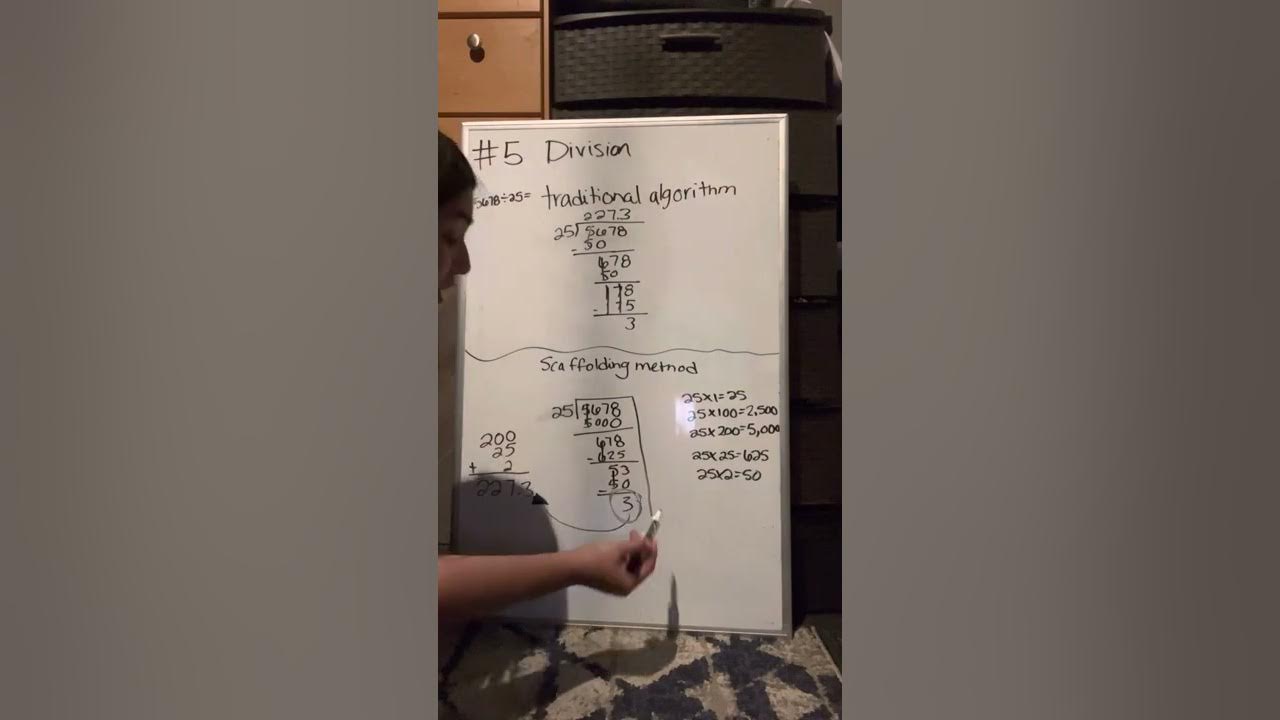 #5 Division
5678÷25= traditional algorithm
227.3
25 5678
- 50
678
50
178
- 175
3
Scaffolding method
25 5678
5000
678
- 625
53
50
3
200
25
+ 2
227.3
25×1=25
25×100=2,500
25×200=5,000
25×25=625
25×2=50